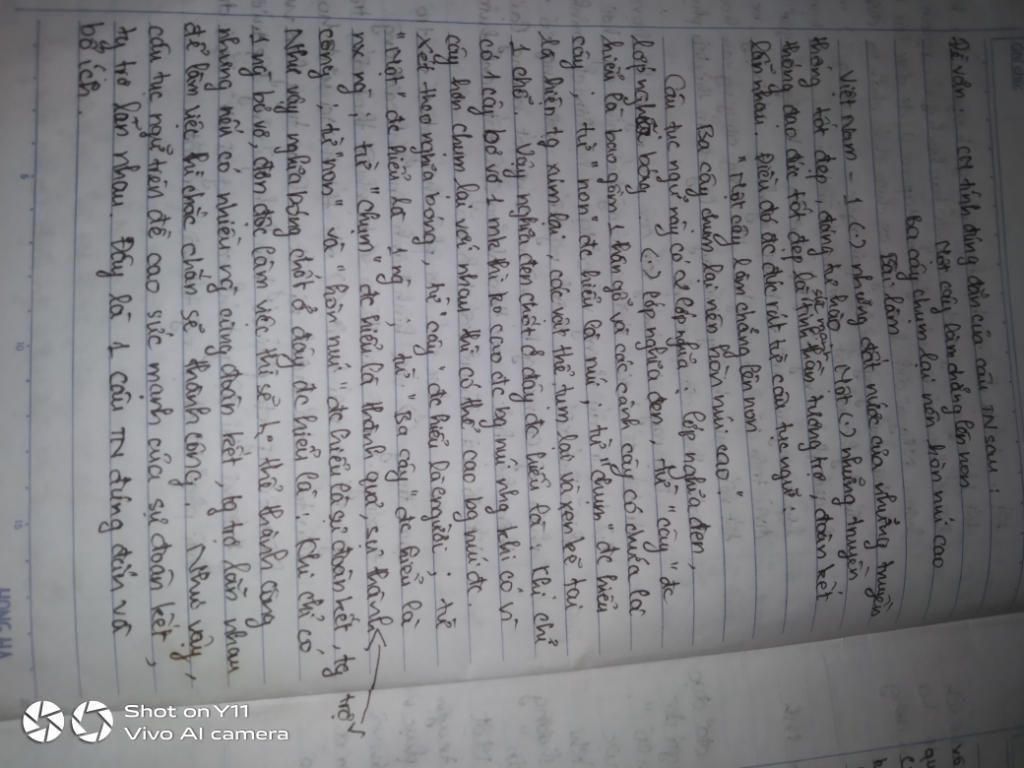 Đề văn: CM tính đúng đắn của câu TN sau:
Một cây làm chẳng lên non
Ba cây chụm lại nên hòn núi cao
Bài làm
Việt Nam - 1 (.) những đất nước của những truyền
thống tốt đẹp, đáng tự hào. Một (.) những truyền
thống đạo đức tốt đẹp là tinh thần tương trợ, đoàn kết
lẫn nhau. Điều đó đc đúc rút từ câu tục ngữ:
"Một cây làm chẳng lên non
Ba cây chụm lại nên hòn núi cao"
Câu tục ngữ này có 2 lớp nghĩa: lớp nghĩa đen,
lớp nghĩa bóng. (.) lớp nghĩa đen, từ "cây" đc
hiểu là bao gồm 1 thân gỗ và các cành cây có chứa lá
cây, từ "non" đc hiểu là núi, từ "chụm" đc hiểu
là hiện tg túm lại, các vật thể túm lại và xen kẽ tại
1 chỗ. Vậy nghĩa đen chốt ở đây đc hiểu là: Khi chỉ
có 1 cây bơ vơ 1 mk thì ko cao đc bg núi nhg khi có
cây hơn chụm lại với nhau thì có thể cao bg núi đc.
Xét theo nghĩa bóng, từ "cây" đc hiểu là con người, từ
"Một" đc hiểu là 1 ng, từ "Ba cây" đc hiểu là
nx ng, từ "chụm" đc hiểu là thành quả, sự thành
công, từ "non" và "hòn núi" đc hiểu là sự đoàn kết, tg trợ
Như vậy nghĩa bóng chốt ở đây đc hiểu là: Khi chỉ có
1 ng bơ vơ, đơn độc làm việc thì sẽ ko thể thành công
nhưng nếu có nhiều ng cùng đoàn kết, tg trợ lẫn nhau
để làm việc thì chắc chắn sẽ thành công. Như vậy,
câu tục ngữ trên đề cao sức mạnh của sự đoàn kết,
tg trợ lẫn nhau. Đây là 1 câu TN đúng đắn và
bổ ích.
HONG HA
Shot on Y11
Vivo AI camera